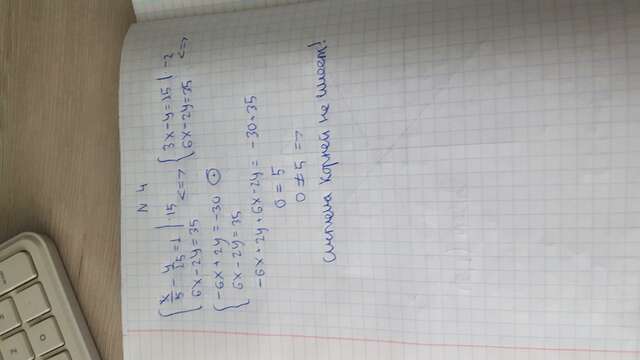 N 4
{ x/5 - y/15 = 1 | ·15 <=> { 3x-y=15 | ·-2
6x-2y=35 6x-2y=35 <=>
{ -6x+2y=-30 ⊕
6x-2y=35
-6x+2y+6x-2y=-30+35
0=5
0≠5 =>
система корней не имеет!